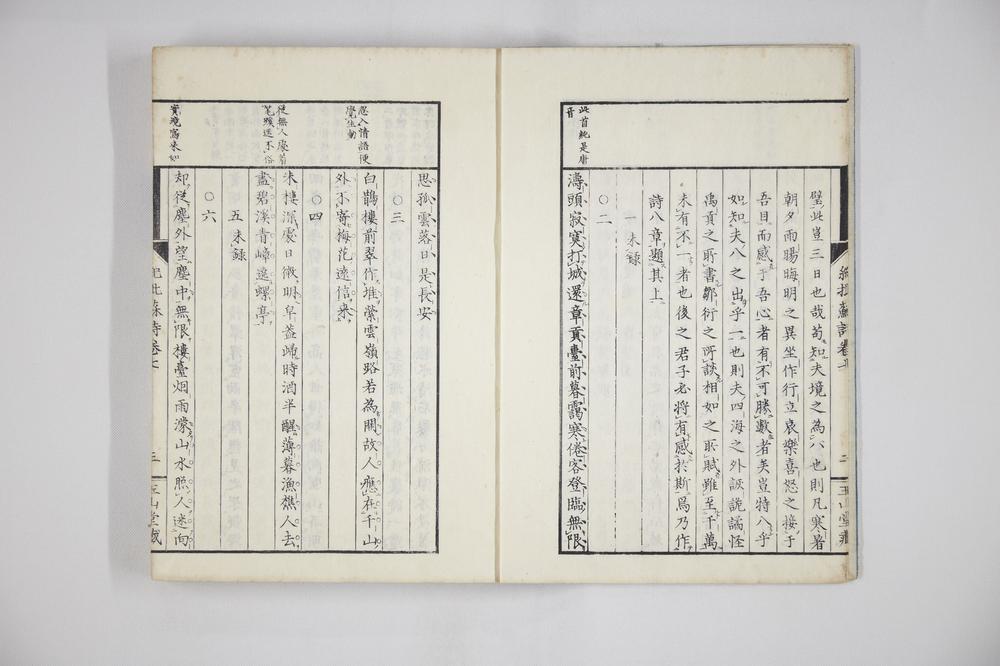 紀批蘇詩卷七
二
玉山堂藏
璧此豈三日也哉苟知夫境之為八也則凡寒暑
朝夕雨暘晦明之異坐作行立哀樂喜怒之接于
吾目而感于吾心者有不可勝數者矣豈特八乎
如知夫八之出乎一也則夫四海之外詼詭譎怪
禹貢之所書鄒衍之所談相如之所賦雖至千萬
未有不一者也後之君子必將有感於斯焉乃作
詩八章題其上
一 未錄
〇二
濤頭寂寞打城還章貢臺前暮靄寒倦客登臨無限
此首純是唐
音
思孤雲落日是長安
〇三
白鵲樓前翠作堆縈雲嶺路若為開故人應在千山
外不寄梅花遠信來
〇四
朱樓深處日微明皁蓋歸時酒半醒薄暮漁樵人去
盡碧溪青嶂遶螺亭
五 未錄
〇六
却從塵外望塵中無限樓臺烟雨濛山水照人迷向
忽入情語便
覺生動
從無人處著
筆蹊逕不俗
實境寫來如
紀批蘇詩卷七
三
玉山堂藏